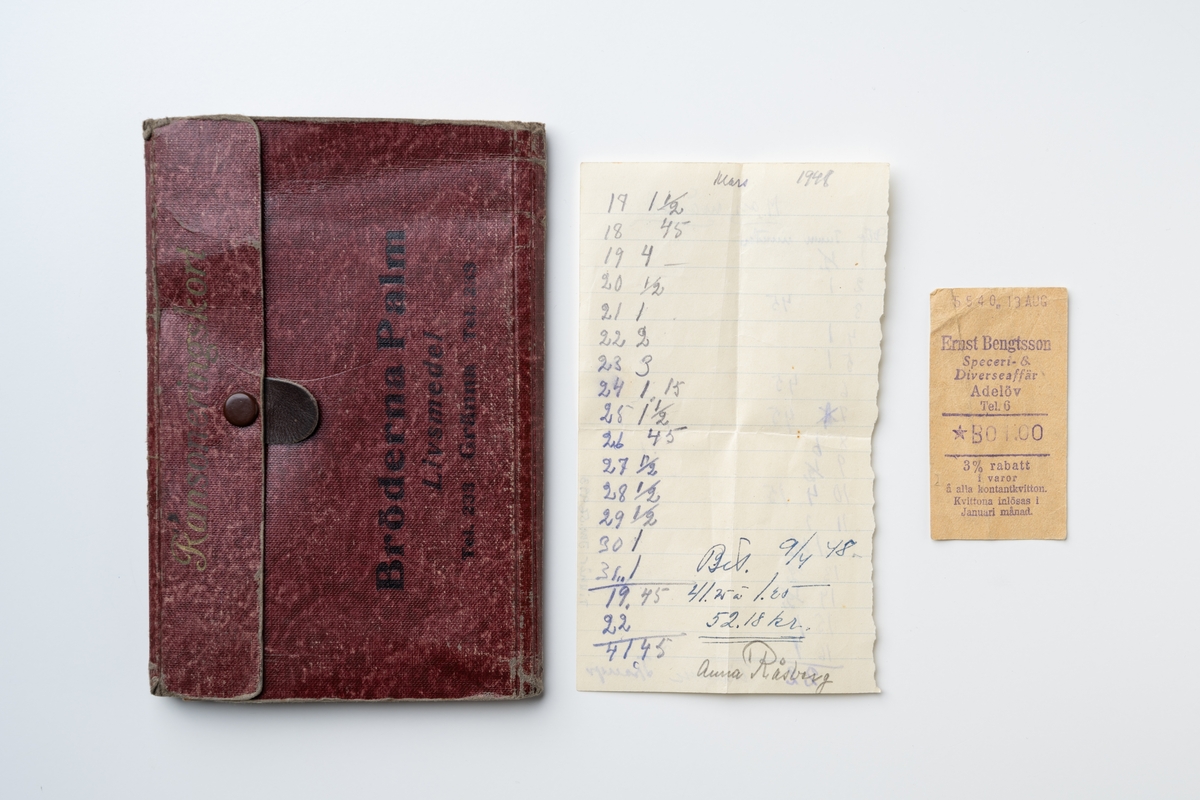 Ransoneringskort
Bröderna Palm
Livsmedel
Tel. 233 Gränna Tel. 249
Mars 1948
17 1 1/2
18 45
19 4 _
20 1/2
21 1
22 2
23 3
24 1.15
25 1 1/2
26 45
27 1/2
28 1/2
29 1/2
30 1
31 1
19.45
22
41 45
Bet. 9/4 48.
41.25 à
52.18 kr.
Anna Råsberg
13 AUG
Ernst Bengtsson
Speceri- &
Diverseaffär
Adelöv
Tel. 6
3% rabatt
i varor
å alla kontantkvitton.
Kvittona inlösas i
Januari månad.